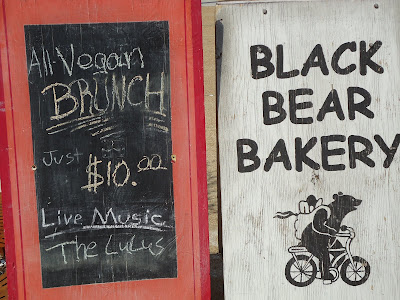 All-Vegan
BRUNCH
Just
$10.00
Live Music
The LuLus
BLACK
BEAR
BAKERY